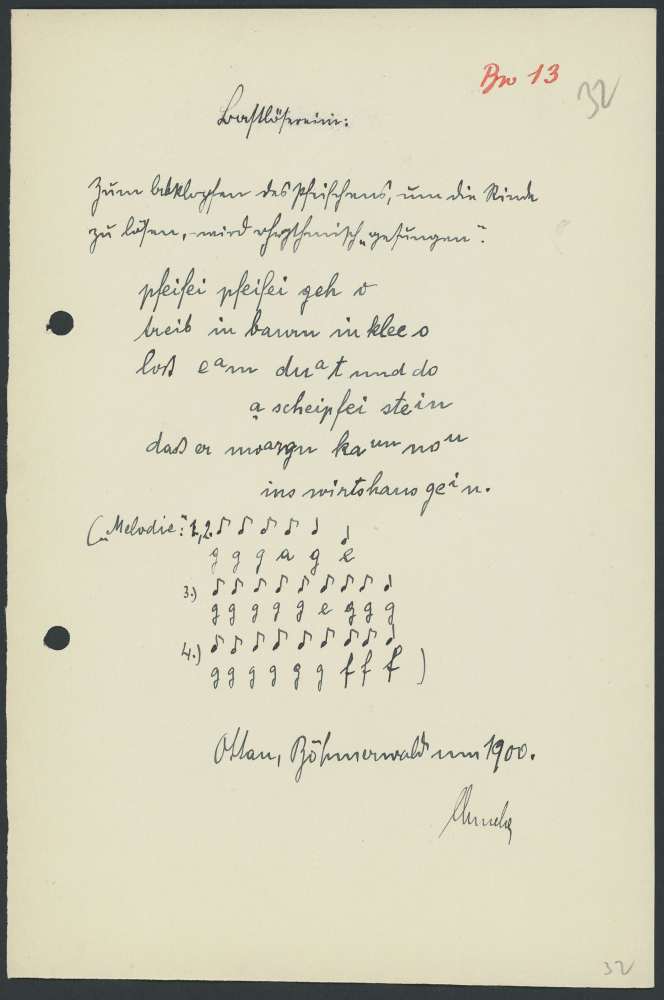 Bw 13
32
Bastlösereim:
Zum Abklopfen des Pfeifchens, um die Rinde
zu lösen, wird rhythmisch „gesungen":
pfeifei pfeifei geh o
treib in bauan in klee o
loß eam duat und do
a scheipfei stein
daß er moargn kaun nou
ins wirtshaus gein.
(„Melodie": 1,2. ♪ ♪ ♪ ♪ ♩ ♩
g g g a g e
3.) ♪ ♪ ♪ ♪ ♪ ♪ ♪ ♪ ♩
g g g g g e g g g
4.) ♪ ♪ ♪ ♪ ♪ ♪ ♪ ♪ ♩
g g g g g g f f f )
Ottau, Böhmerwald um 1900.
32